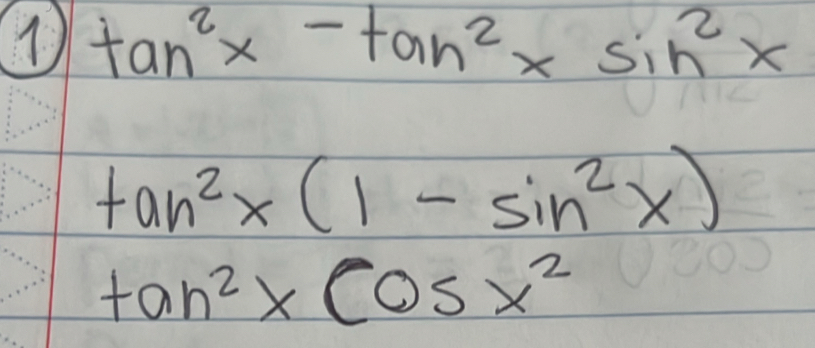 ① tan²x - tan²x sin²x
tan²x (1 - sin²x)
tan²x cos x²